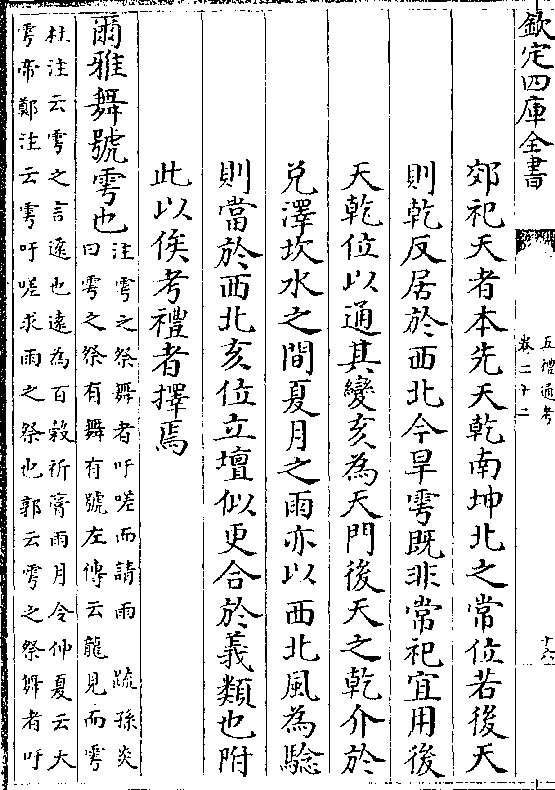 欽定四庫全書
五禮通考
卷二十二
郊祀天者本先天乾南坤北之常位若後天
則乾反居於西北今旱雩既非常祀宜用後
天乾位以通其變亥為天門後天之乾介於
兌澤坎水之間夏月之雨亦以西北風為驗
則當於西北亥位立壇似更合於義類也附
此以俟考禮者擇焉
爾雅舞號雩也
注雩之祭舞者吁嗟而請雨 疏孫炎
曰雩之祭有舞有號左傳云龍見而雩
杜注云雩之言遠也遠為百榖祈膏雨月令仲夏云大
雩帝鄭注云雩吁嗟求雨之祭也郭云雩之祭舞者吁